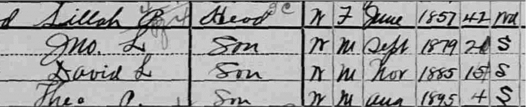 Head W F June 1857 42 Wd
Jno. L Son W M Sept 1879 20 S
David L Son W M Nov 1885 15 S
Theo P. Son W M Aug 1895 4 S